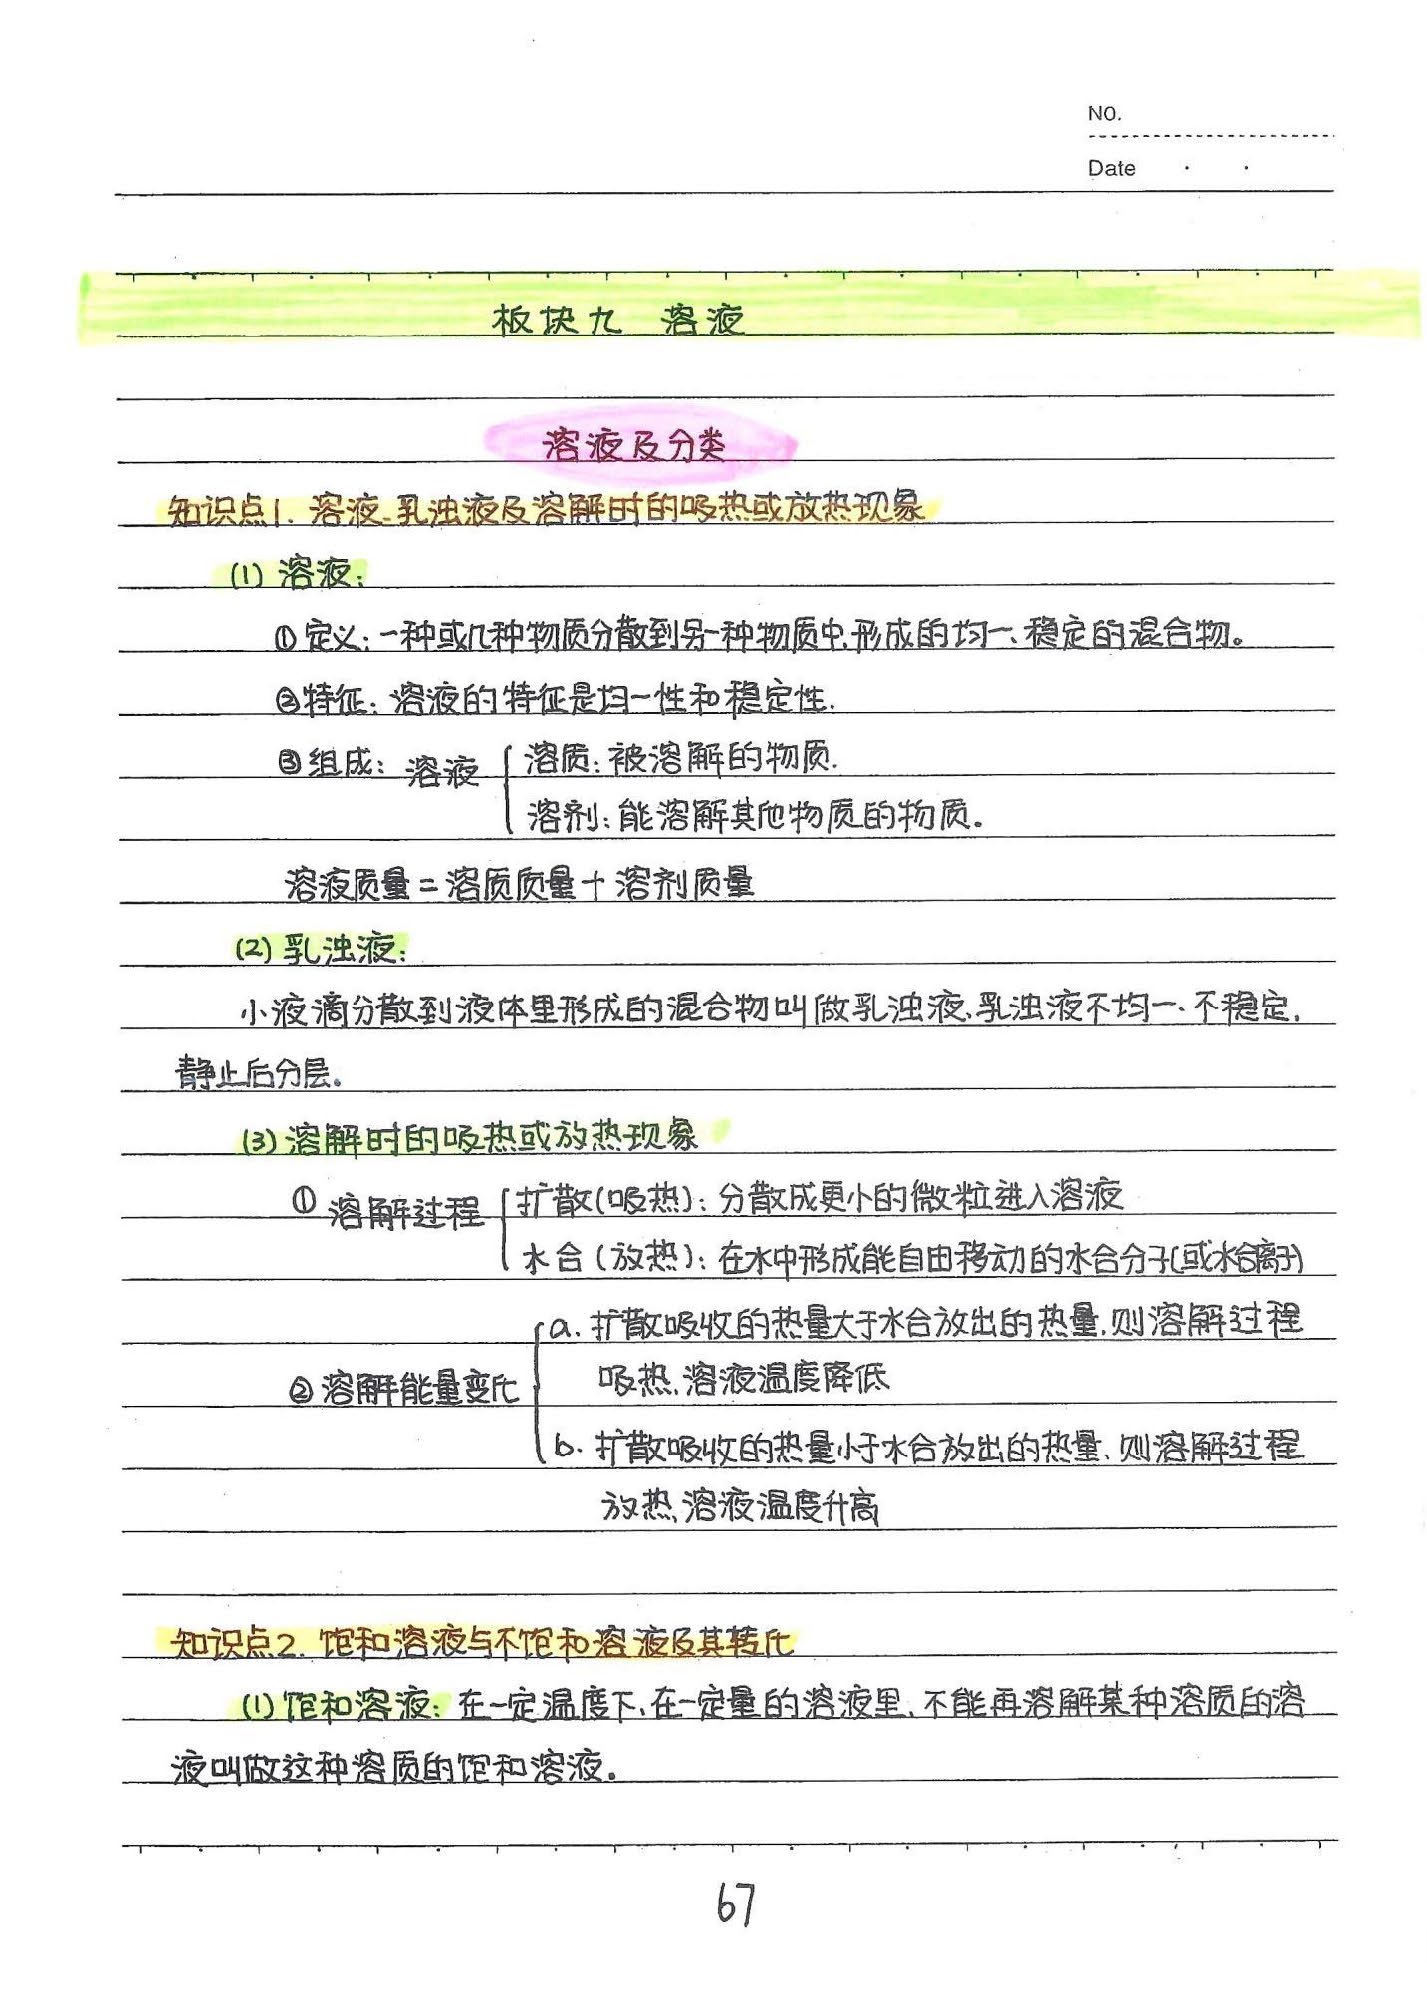 NO.
Date
板块九 溶液
溶液及分类
知识点1. 溶液、乳浊液及溶解时的吸热或放热现象
(1) 溶液:
①定义: 一种或几种物质分散到另一种物质中,形成的均一、稳定的混合物。
②特征: 溶液的特征是均一性和稳定性.
③组成: 溶液
溶质: 被溶解的物质.
溶剂: 能溶解其他物质的物质.
溶液质量=溶质质量+溶剂质量
(2) 乳浊液:
小液滴分散到液体里形成的混合物叫做乳浊液,乳浊液不均一、不稳定,
静止后分层.
(3) 溶解时的吸热或放热现象
① 溶解过程
扩散(吸热): 分散成更小的微粒进入溶液
水合(放热): 在水中形成能自由移动的水合分子(或水合离子)
②溶解能量变化
a. 扩散吸收的热量大于水合放出的热量,则溶解过程
吸热,溶液温度降低
b. 扩散吸收的热量小于水合放出的热量,则溶解过程
放热,溶液温度升高
知识点2. 饱和溶液与不饱和溶液及其转化
(1) 饱和溶液: 在一定温度下,在一定量的溶液里,不能再溶解某种溶质的溶
液叫做这种溶质的饱和溶液.
67